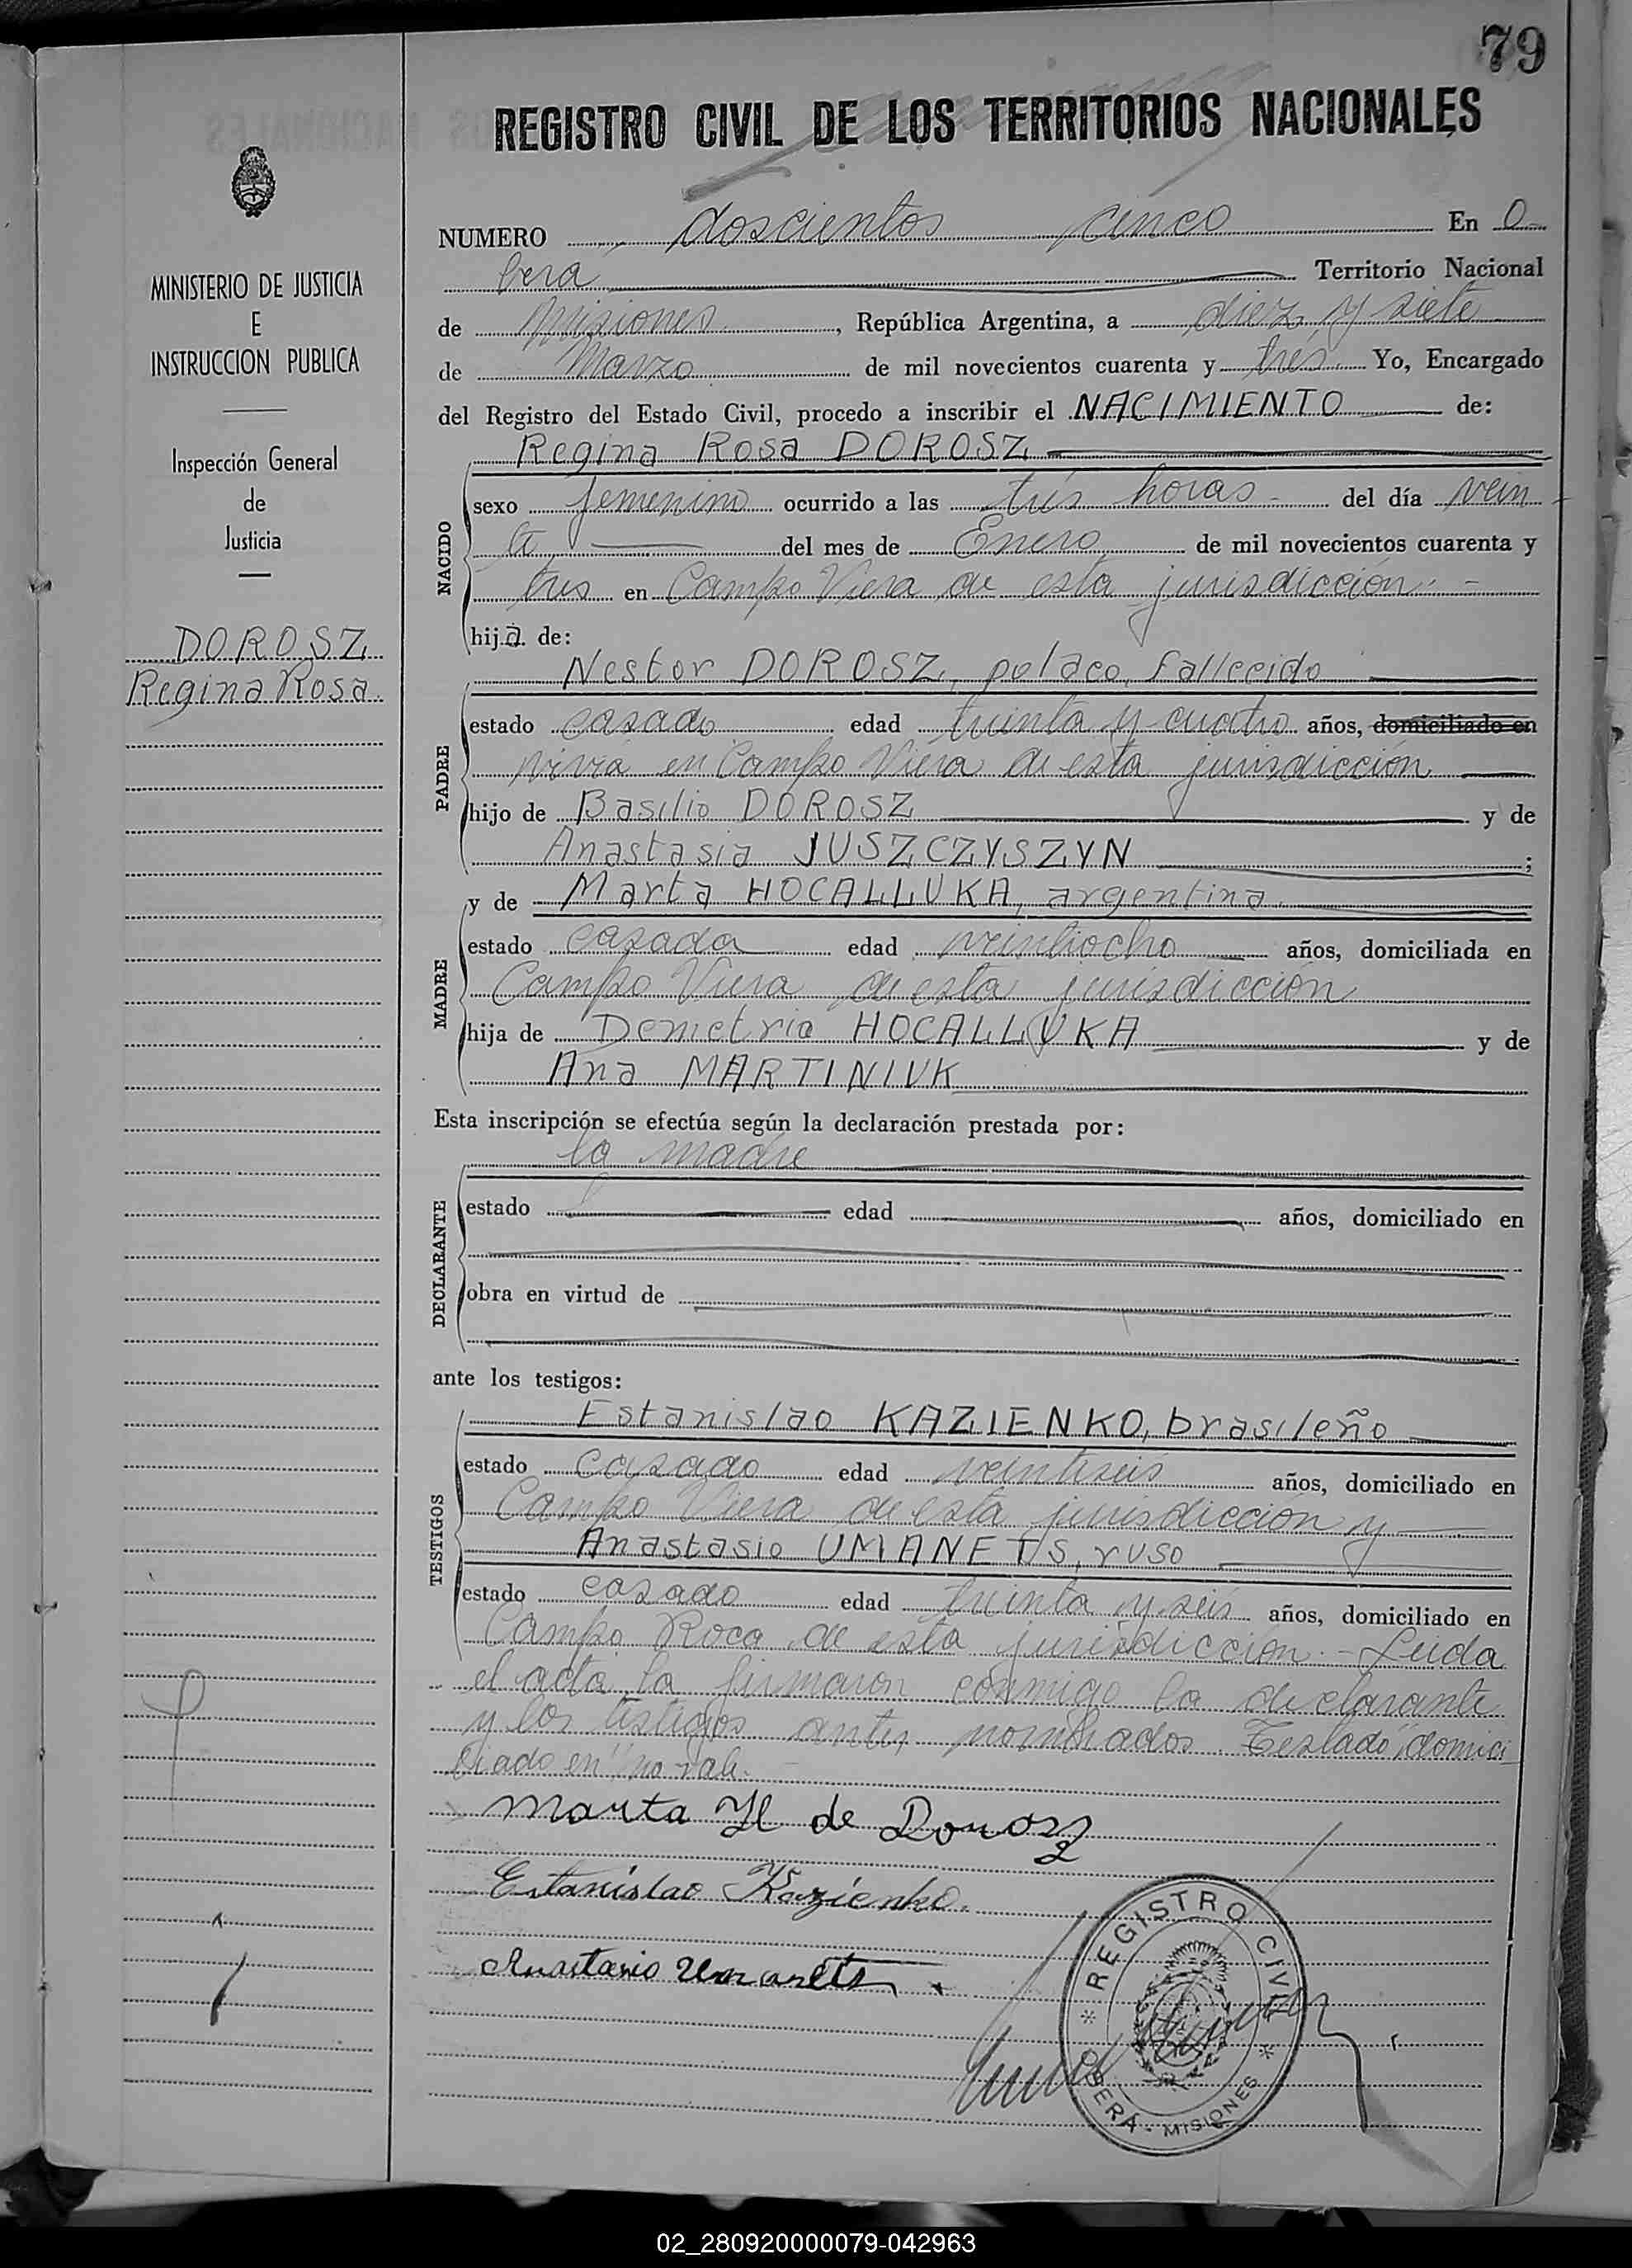 79
REGISTRO CIVIL DE LOS TERRITORIOS NACIONALES
MINISTERIO DE JUSTICIA
E
INSTRUCCION PUBLICA
Inspección General
de
Justicia
DOROSZ
Regina Rosa
NUMERO doscientos cinco En O-
bera Territorio Nacional
de Misiones, República Argentina, a diez y siete
de Marzo de mil novecientos cuarenta y tres Yo, Encargado
del Registro del Estado Civil, procedo a inscribir el NACIMIENTO de:
Regina Rosa DOROSZ
NACIDO
sexo femenino ocurrido a las tres horas - del día vein-
te del mes de Enero de mil novecientos cuarenta y
tres en Campo Viera de esta jurisdicción.-
hija de:
Nestor DOROSZ, polaco, fallecido
PADRE
estado casado edad treinta y cuatro años, domiciliado en
vivia en Campo Viera de esta jurisdicción
hijo de Basilio DOROSZ y de
Anastasia JUSZCZYSZYN;
y de Marta HOCALLUKA, argentina.
MADRE
estado casada edad veintiocho años, domiciliada en
Campo Viera de esta jurisdicción
hija de Demetrio HOCALLUKA y de
Ana MARTINIUK
Esta inscripción se efectúa según la declaración prestada por:
la madre
DECLARANTE
estado edad años, domiciliado en
obra en virtud de
ante los testigos:
Estanislao KAZIENKO, brasileño
TESTIGOS
estado casado edad veintiseis años, domiciliado en
Campo Viera de esta jurisdicción y
Anastasio UMANETS, ruso
estado casado edad treinta y seis años, domiciliado en
Campo Roca de esta jurisdicción.- Leida
el acta la firmaron conmigo la declarante
y los testigos antes nombrados. Testado "domici
liado en" no vale.-
Marta H de Dorosz
Estanislao Kazienko.
Anastasio Umanets.
REGISTRO CIVIL
OBERÁ - MISIONES
02_280920000079-042963